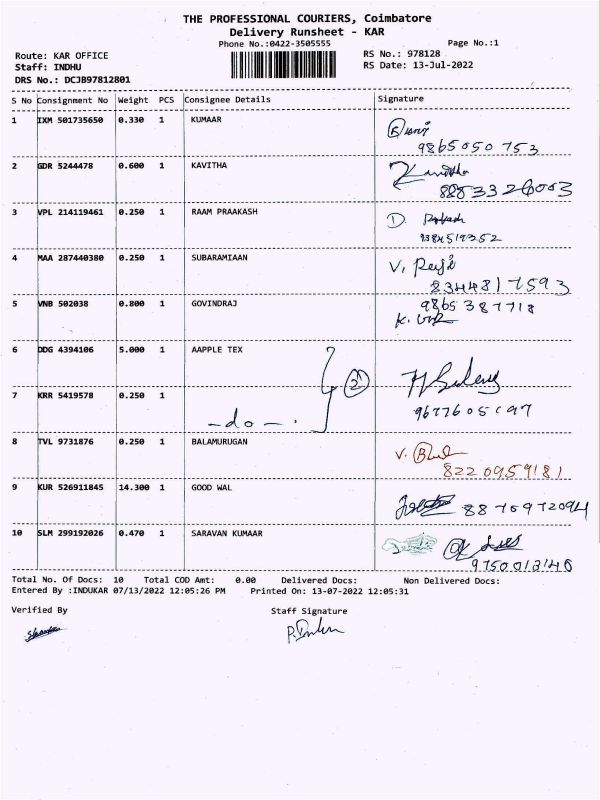 THE PROFESSIONAL COURIERS, Coimbatore
Delivery Runsheet - KAR
Phone No.:0422-3505555
Page No.:1
Route: KAR OFFICE
RS No.: 978128
Staff: INDHU
RS Date: 13-Jul-2022
DRS No.: DCJB97812801
S No Consignment No Weight PCS Consignee Details Signature
1 IXM 501735650 0.330 1 KUMAAR
9865050753
2 GDR 5244478 0.600 1 KAVITHA
Kavitha
8883326003
3 VPL 214119461 0.250 1 RAAM PRAAKASH
1 Prakash
9384519252
4 MAA 287440380 0.250 1 SUBARAMIAAN
8344817593
5 VNB 502038 0.800 1 GOVINDRAJ
9865387718
6 DDG 4394106 5.000 1 AAPPLE TEX
2
7 KRR 5419578 0.250 1
-do-
8 TVL 9731876 0.250 1 BALAMURUGAN
8220959181
9 KUR 526911845 14.300 1 GOOD WAL
8876972094
10 SLM 299192026 0.470 1 SARAVAN KUMAAR
Total No. Of Docs: 10 Total COD Amt: 0.00 Delivered Docs: Non Delivered Docs:
Entered By :INDUKAR 07/13/2022 12:05:26 PM Printed On: 13-07-2022 12:05:31
Verified By Staff Signature